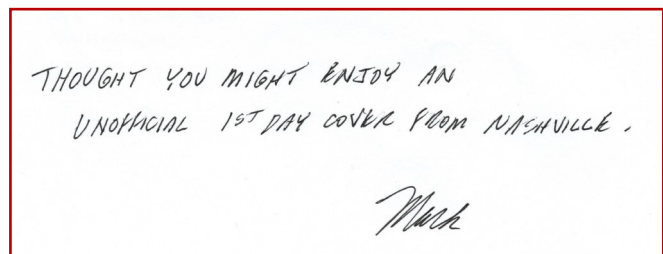 THOUGHT YOU MIGHT ENJOY AN
UNOFFICIAL 1ST DAY COVER FROM NASHVILLE.
Mark